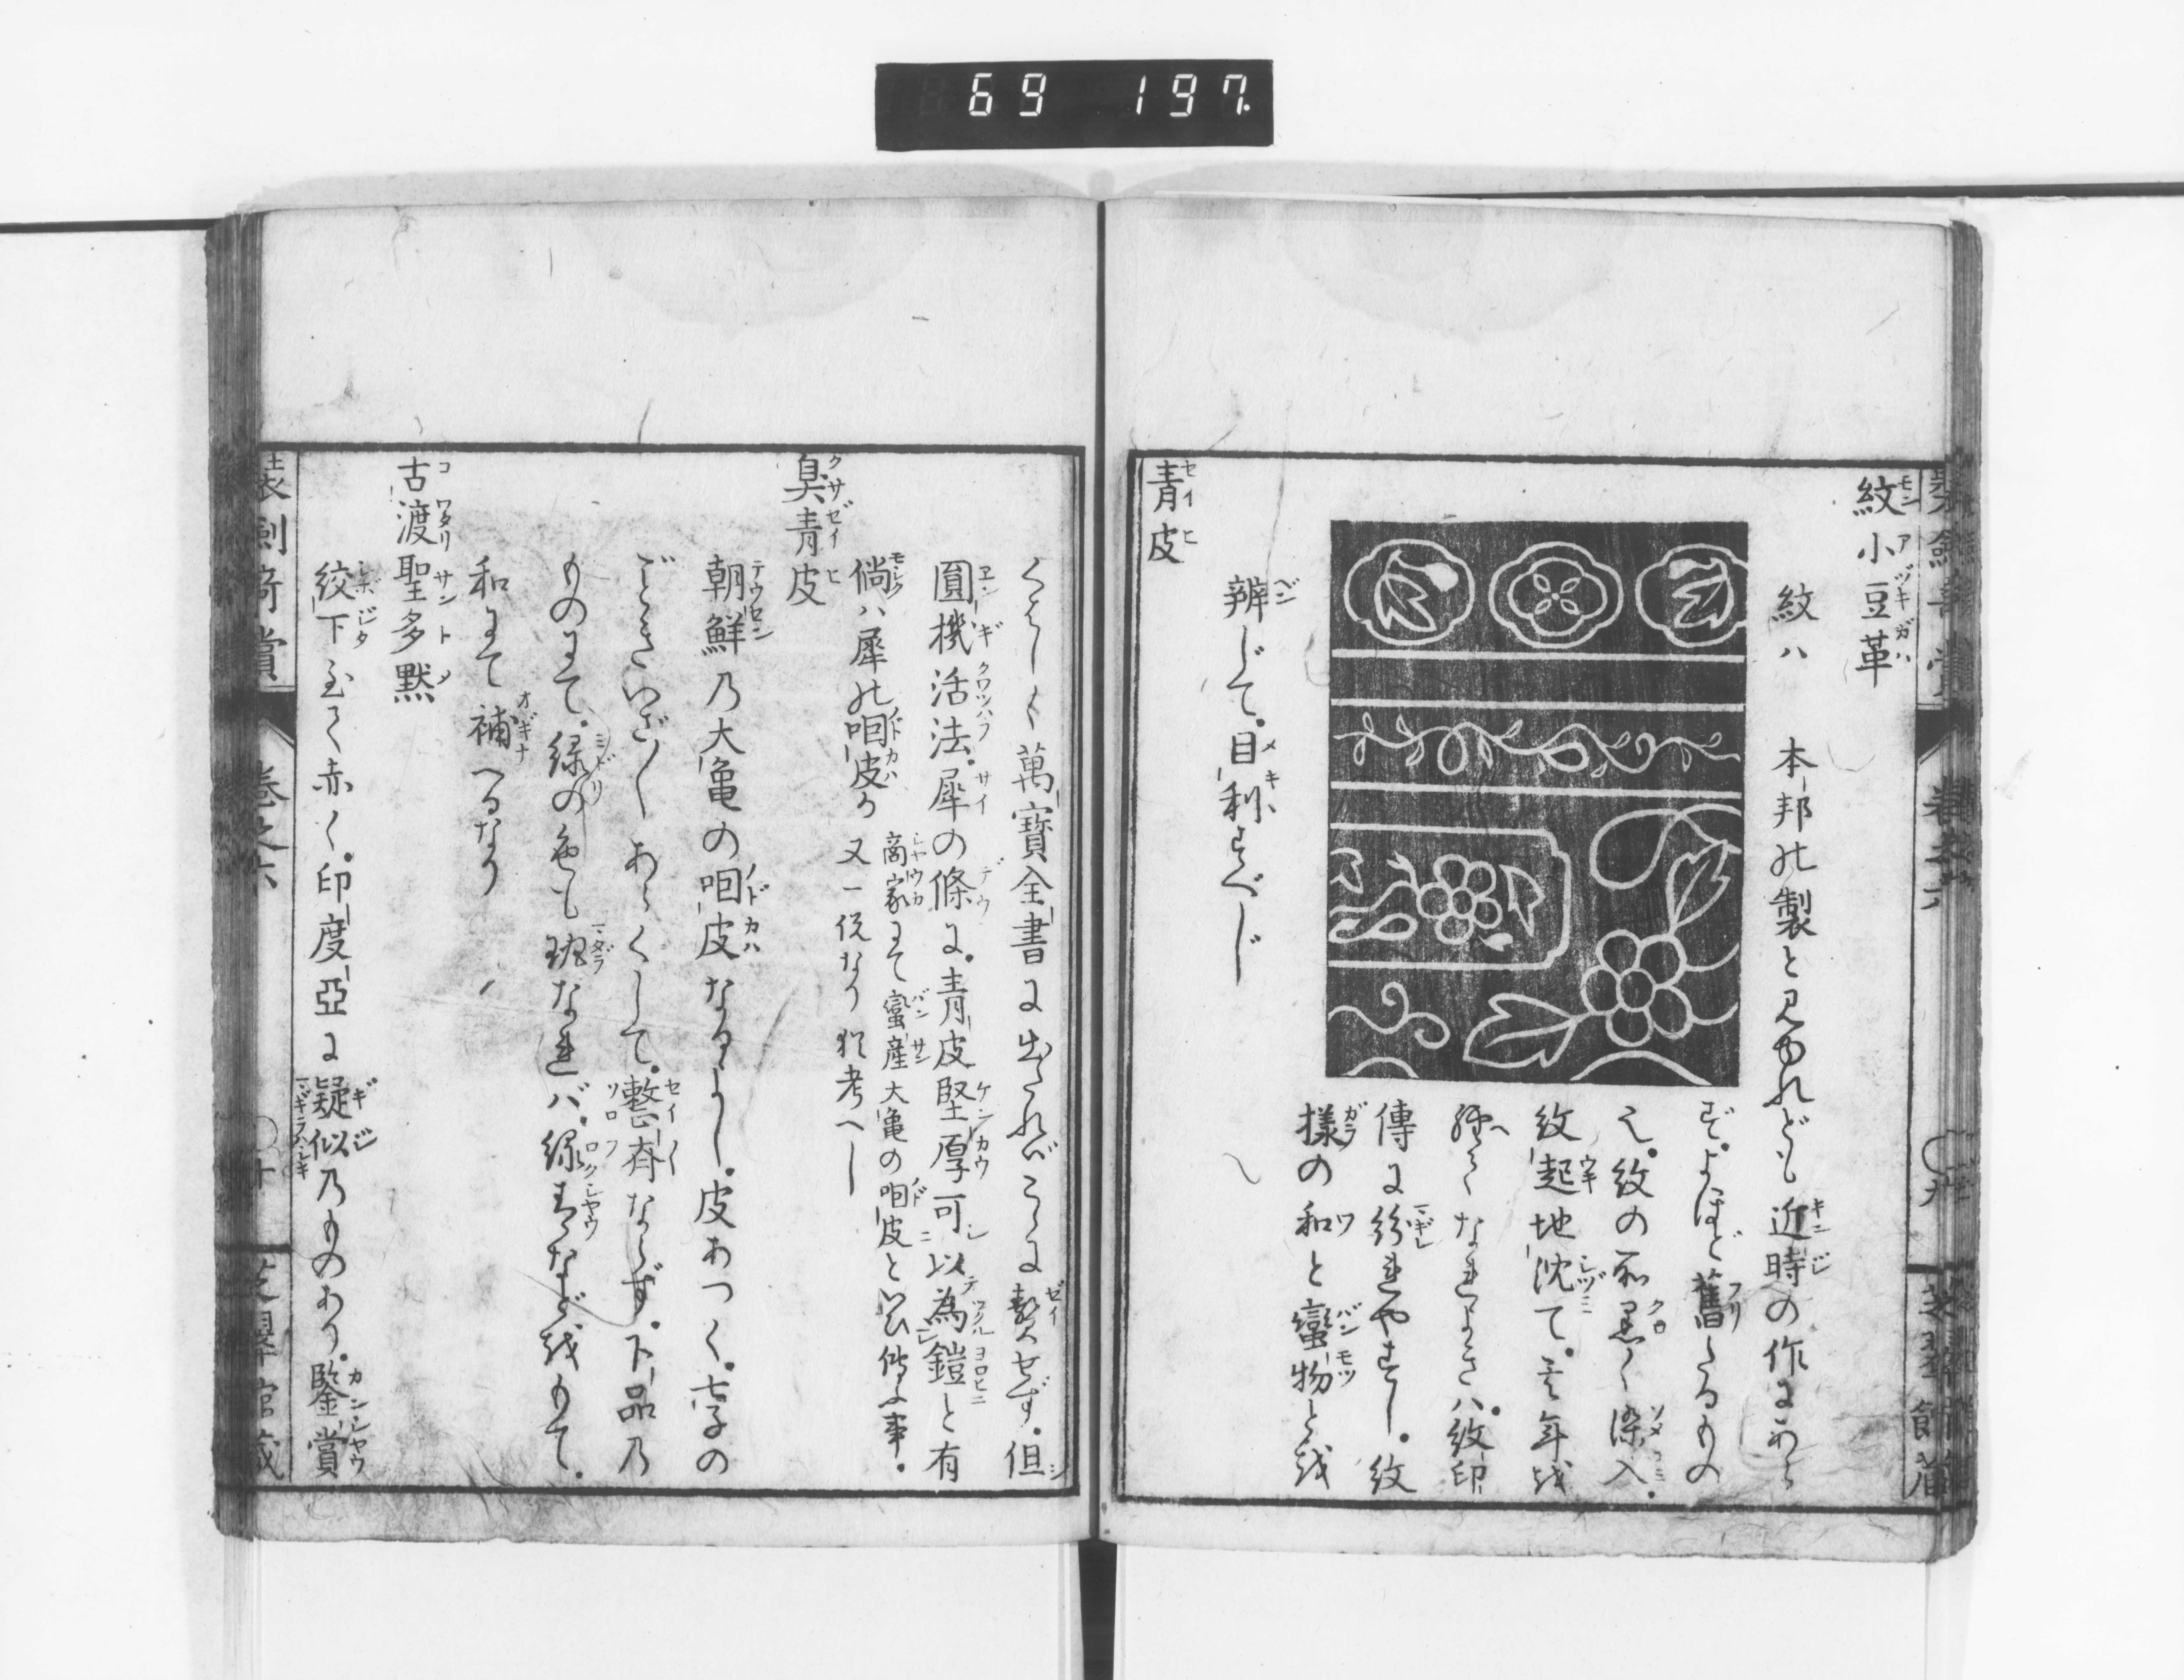 69 197.
紋小豆革
紋ハ 本邦の製と見ゆれども近時の作にあら
ず。よほど舊りたるもの
紋の
黒く染入。
紋起地沈て。
年を
紋印
傳に紛れやすし。紋
様の和と蠻物とを
辨じて。目利すべし
青皮
くはしく萬寳全書に出たればこゝに贅せず。但
圓機活法。犀の條に。青皮堅厚可以為鎧と有
倘ハ犀の咽皮か
商家にて蠻産大亀の咽皮と云傳ふ事。
又一説なり猶考へし
臭青皮
朝鮮乃大亀の咽皮なるよし。皮あつく。
ごときいぎ〱あらくして。整斉ならず。下品乃
ものにて。緑の色も斑なれバ。緑青などをもて。
和にて補へるなり
古渡聖多黙
絞下至て赤く。印度亞に疑似乃ものあり。鑒賞
装劍竒賞
巻之六
十
芝翠館蔵